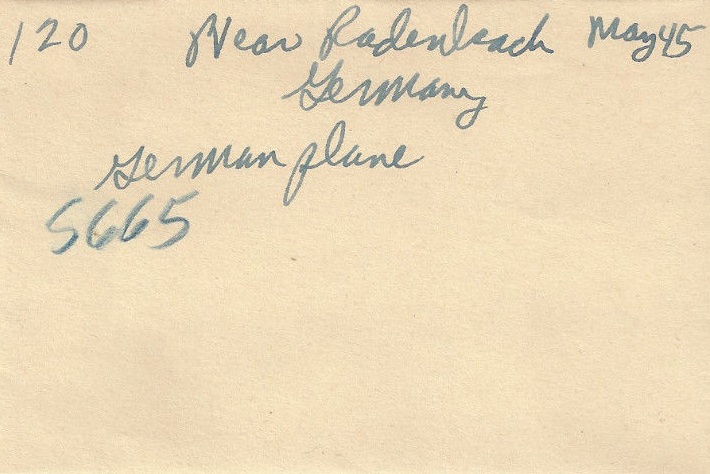 120 Near Radenbach May 45
Germany
German plane
5665